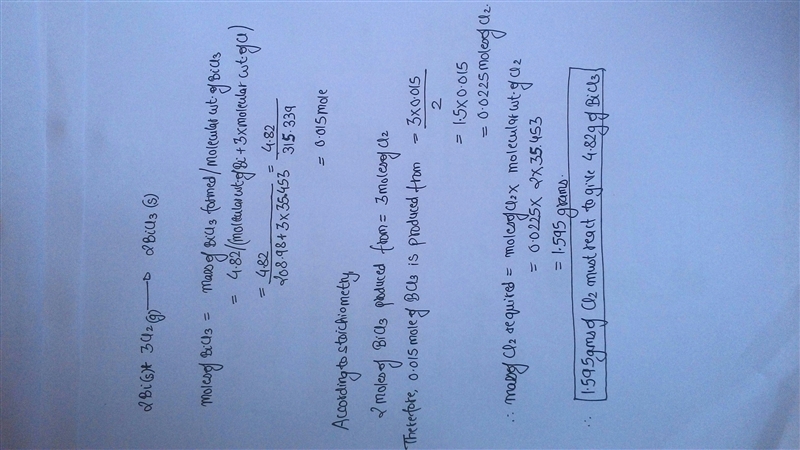 2Bi(s)+ 3Cl2(g) → 2BiCl3(s)
moles of BiCl3 = mass of BiCl3 formed/molecular wt. of BiCl3
= 4.82/(molecular wt of Bi + 3x molecular wt. of Cl)
= 4.82 / 208.98+3×35.453 = 4.82 / 315.339
= 0.015 mole
According to stoichiometry,
2 moles of BiCl3 produced from = 3 moles of Cl2
Therefore, 0.015 mole of BCl3 is produced from = 3×0.015 / 2
= 1.5×0.015
= 0.0225 moles of Cl2.
∴ mass of Cl2 required = moles of Cl2 x molecular wt of Cl2
= 0.0225 x 2×35.453
= 1.595 grams.
∴ 1.595 gms of Cl2 must react to give 4.82g of BiCl3